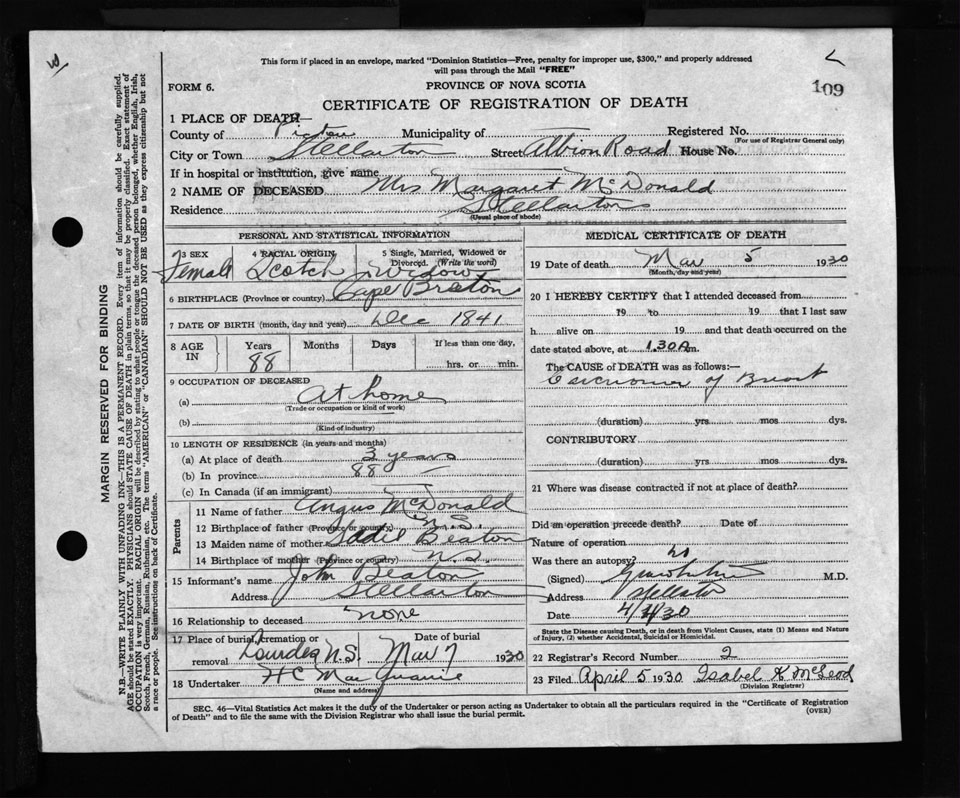 This form if placed in an envelope, marked "Dominion Statistics—Free, penalty for improper use, $300," and properly addressed
will pass through the Mail "FREE"
109
FORM 6.
PROVINCE OF NOVA SCOTIA
CERTIFICATE OF REGISTRATION OF DEATH
1 PLACE OF DEATH—
County of Pictou Municipality of Registered No.
(For use of Registrar General only)
City or Town Stellarton Street Albion Road House No.
If in hospital or institution, give name
2 NAME OF DECEASED Mrs Margaret McDonald
Residence Stellarton
(Usual place of abode)
PERSONAL AND STATISTICAL INFORMATION
3 SEX 4 RACIAL ORIGIN 5 Single, Married, Widowed or
Divorced. (Write the word)
Female Scotch Widow
6 BIRTHPLACE (Province or country) Cape Breton
7 DATE OF BIRTH (month, day and year) Dec 1841
8 AGE IN Years Months Days If less than one day,
88 hrs. or min.
9 OCCUPATION OF DECEASED
(a) At home
(Trade or occupation or kind of work)
(b)
(Kind of industry)
10 LENGTH OF RESIDENCE (in years and months)
(a) At place of death 3 years
(b) In province 88
(c) In Canada (if an immigrant)
Parents
11 Name of father Angus McDonald
12 Birthplace of father (Province or country) N.S.
13 Maiden name of mother Beaton
14 Birthplace of mother (Province or country) N.S.
15 Informant's name John Beaton
Address Stellarton
16 Relationship to deceased none
17 Place of burial, cremation or Date of burial
removal Lourdes N.S. Mar 7 1930
18 Undertaker H C Mac Quarrie
(Name and address)
MEDICAL CERTIFICATE OF DEATH
19 Date of death Mar 5 1930
(Month, day and year)
20 I HEREBY CERTIFY that I attended deceased from
19 to 19 that I last saw
h alive on 19 and that death occurred on
date stated above, at 1.30 A m.
The CAUSE of DEATH was as follows:—
Carcinoma of Breast
(duration) yrs mos dys.
CONTRIBUTORY
(duration) yrs mos dys.
21 Where was disease contracted if not at place of death?
Did an operation precede death? Date of
Nature of operation
Was there an autopsy? no
(Signed) M.D.
Address Stellarton
Date 4/4/30
State the Disease causing Death, or in death from Violent Causes, state (1) Means and Nature
of Injury, (2) whether Accidental, Suicidal or Homicidal.
22 Registrar's Record Number 2
23 Filed April 5 1930 Isabel K McLeod
(Division Registrar)
SEC. 46—Vital Statistics Act makes it the duty of the Undertaker or person acting as Undertaker to obtain all the particulars required in the "Certificate of Registration
of Death" and to file the same with the Division Registrar who shall issue the burial permit.
(OVER)
MARGIN RESERVED FOR BINDING
N.B.—WRITE PLAINLY WITH UNFADING INK—THIS IS A PERMANENT RECORD. Every item of information should be carefully supplied.
AGE should be stated EXACTLY. PHYSICIANS should STATE CAUSE OF DEATH in plain terms, so that it may be properly classified. Exact statement of
OCCUPATION is very important. RACIAL ORIGIN will be described by stating to what people or tongue the deceased person belonged, whether English, Irish,
Scotch, French, German, Russian, Ruthenian, etc. The terms "AMERICAN" or "CANADIAN" SHOULD NOT BE USED as they express citizenship but not
a race or people. See instructions on back of Certificate.